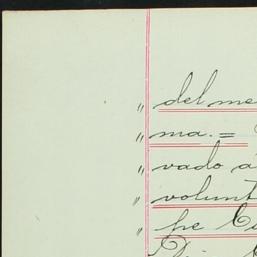 " del me
" ma. =
" vado a
" volunt
" pe C